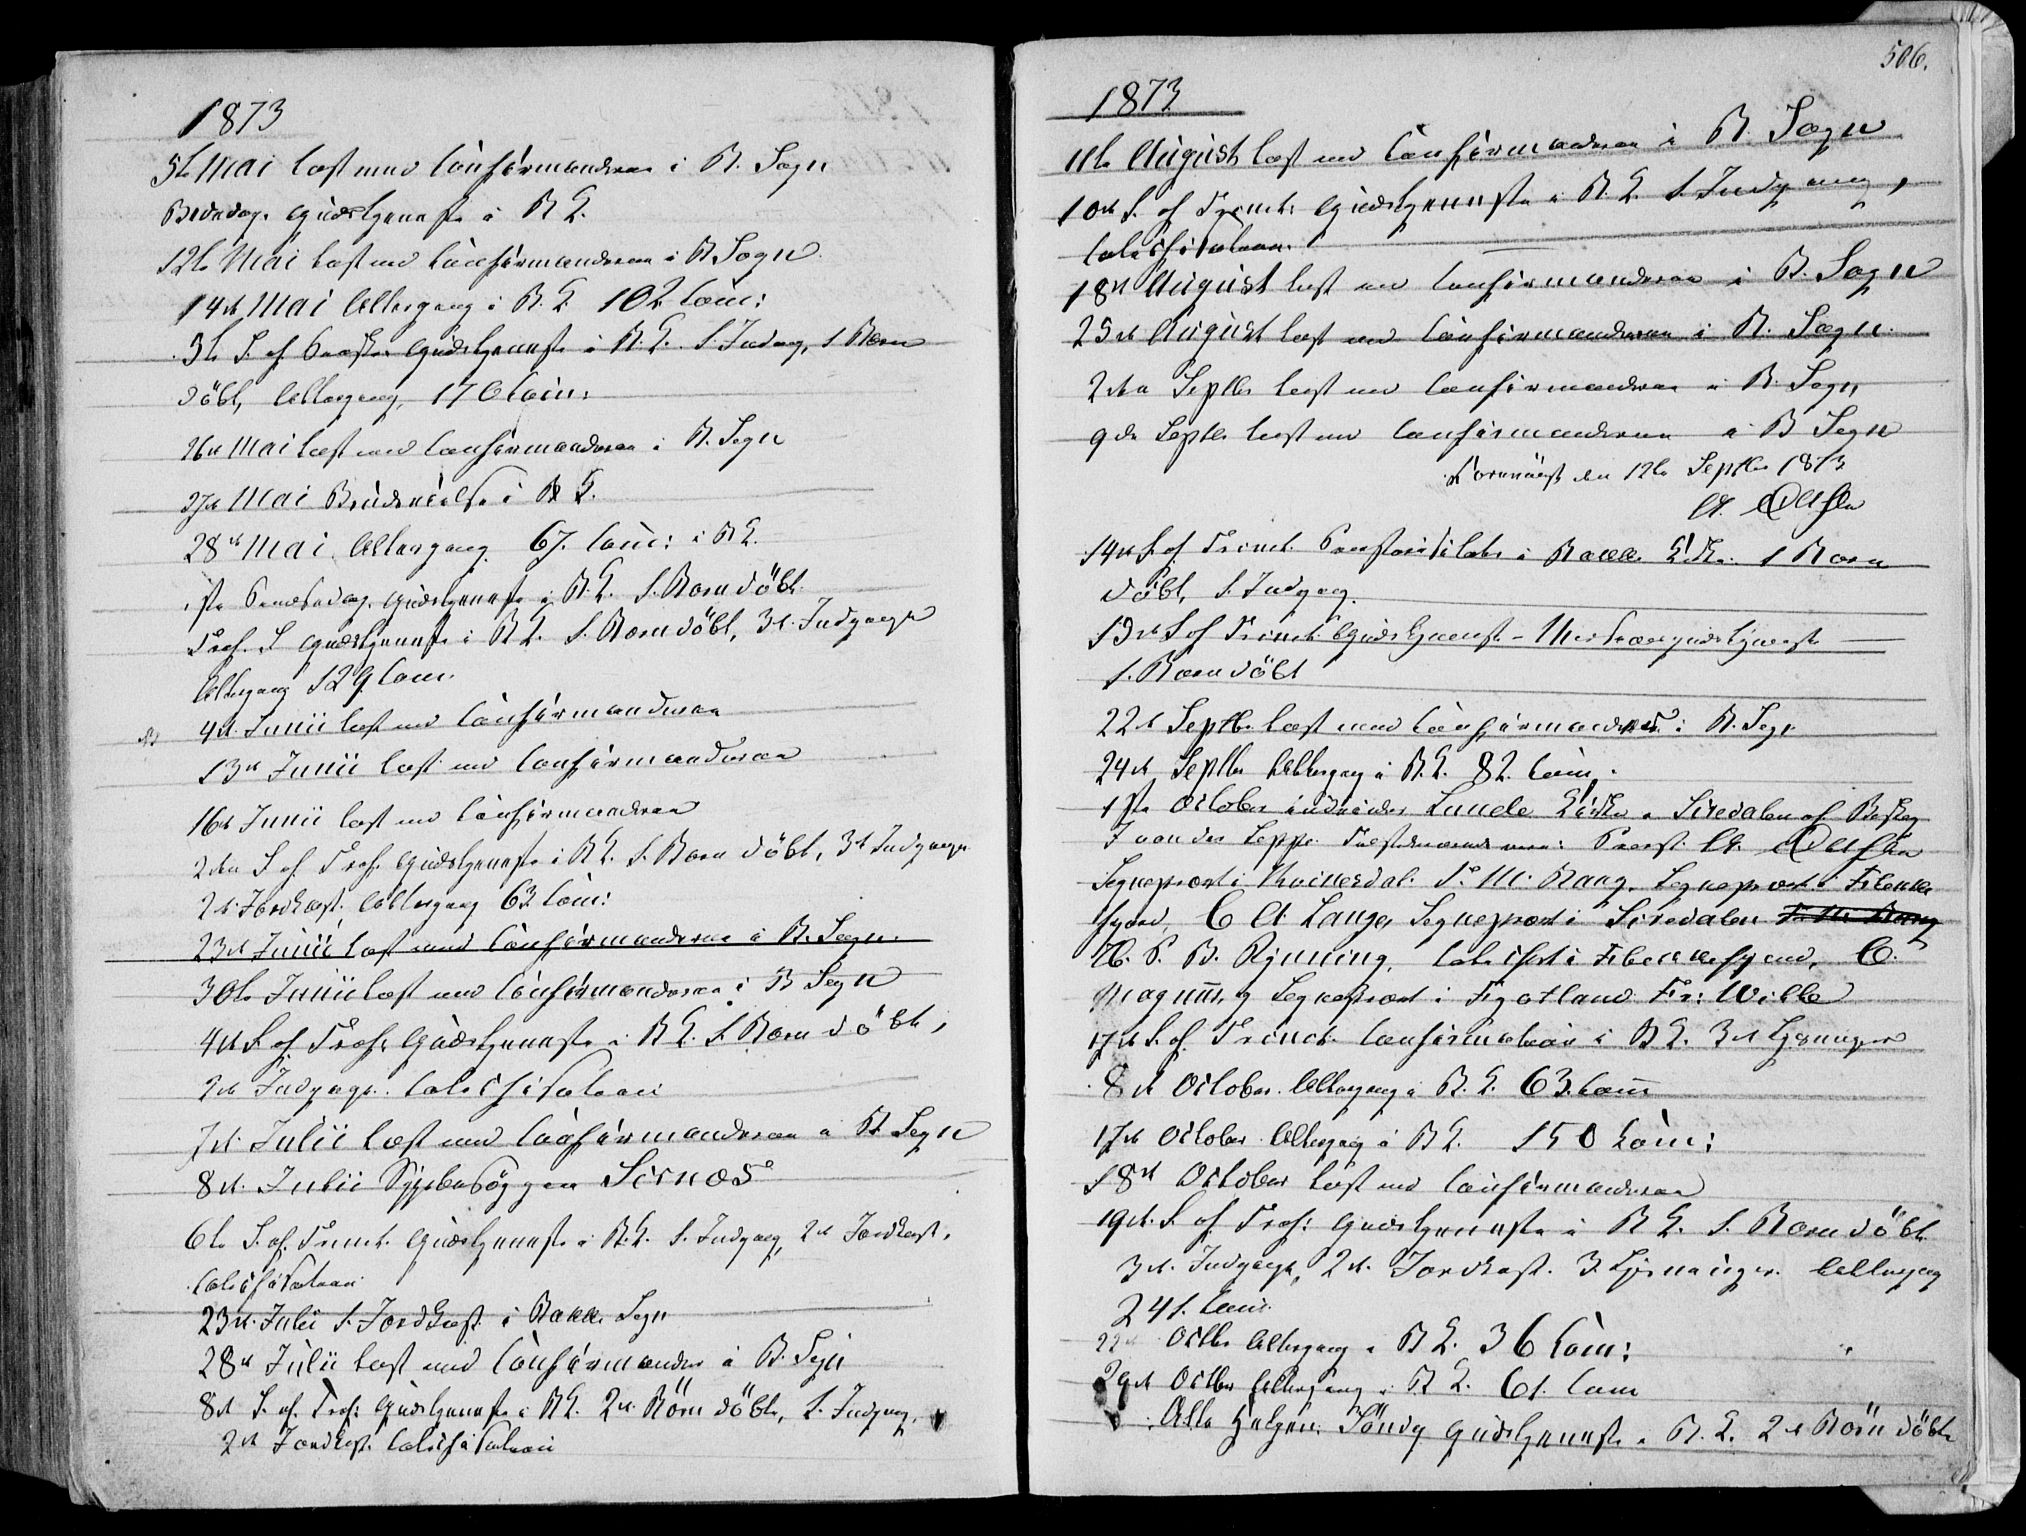 1873
5te Mai læst med Confirmanderne i B. Sogn
Bededag. Gudstjeneste i B K.
12te Mai læst med Confirmanderne i B Sogn
14de Mai Altergang i B. K 102 Com:
5te S. ef Paaske Gudstjeneste i B. K. 1. Indgang, 1 Barn
döbt, Altergang, 170 Com:
26de Mai læst med Confirmanderne i B. Sogn
27de Mai Brudevielse i B K.
28de Mai Altergang 67. Com: i B K.
1ste Pindsedag. Gudstjeneste i B. K. 1. Barn döbt.
Tref. S Gudstjeneste i B K. 1. Barn döbt, 3de Indgange
Altergang 129 Com.
4de Junii læst med Confirmanderne
13de Junii læst med Confirmanderne
16de Junii læst med Confirmanderne
2den S. ef Tref. Gudstjeneste i B K. 1. Barn döbt, 3de Indgange
2de Jordkast. Altergang 63 Com:
23de Junii læst med Confirmanderne i B. Sogn.
30te Junii læst med Confirmanderne i B Sogn
4de S. ef. Tref. Gudstjeneste i B K. 1. Barn döbt,
2de Indgange. Catechisation
7de Julii læst med Confirmanderne i B Sogn
8de Julii Sygebesög paa Sirnæs
6te S. ef. Trinit. Gudstjeneste i B. K. 1. Indgang, 2de Jordkast.
Catechisation
23de Julii 1. Jordkast i Bakke Sogn
28de Julii læst med Confirmander i B. Sogn
8de S. ef. Tref: Gudstjeneste i B K. 2de Börn döbte, 1. Indgang,
2de Jordkast. Catechisation
506.
1873
11te August læst med Confirmanderne i B. Sogn
10de S. ef Trinit: Gudstjeneste i B. K. 1. Indgang,
Catechisation.
18de August læst med Confirmanderne i B. Sogn
25de August læst med Confirmanderne i B. Sogn.
2den Septbr læst med Confirmanderne i B. Sogn
9de Septbr læst med Confirmanderne i B Sogn
den 12te Septbr 1873
14de S. ef Trinit. i Bakke Kirke. 1 Barn
döbt, 1. Indgang.
15de S ef Trinit. Gudstjeneste -
1. Barn döbt
22de Septbr læst med Confirmanderne i B. Sogn
24de Septbr Altergang i B. K. 82. Com:
1ste October indviedes Lunde Kirke i Siredalen af Biskop
J von der Lippe. Tilstedeværende vare: Provst A.
Sognepræst i Kvinesdal. M. Rang, Sognepræst i Flekke
fjord, C A Lange, Sognepræst i Siredalen
H. P. B. Rynning, Catechet i Flekkefjord, C.
Magnus, og Sognepræst i Fjotland Fr: Wille
17de S. ef. Trinit. Confirmation i B K. 3de Lysninger
8de October. Altergang i B. K. 63. Com
17de October Altergang i B K. 150 Com:
18de October læst med Confirmanderne
19de S. ef Tref: Gudstjeneste i B K. 1. Barn döbt.
3de Indgange, 2de Jordkast. 3 Lysninger. Altergang
241. Com:
22de Octbr Altergang i B K. 36 Com:
29de Octbr Altergang i B K. 61. Com
Alle Helgens Söndg Gudstjeneste i B. K. 2de Börn döbte